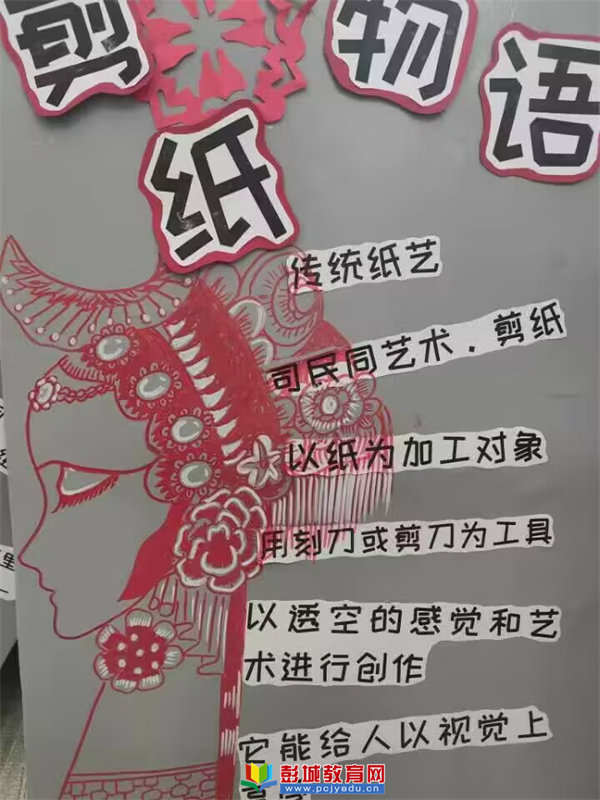 剪纸物语
传统纸艺
司民同艺术．剪纸
以纸为加工对象
用刻刀或剪刀为工具
以透空的感觉和艺
术进行创作
它能给人以视觉上
彭城教育网
www.pcjyedu.cn